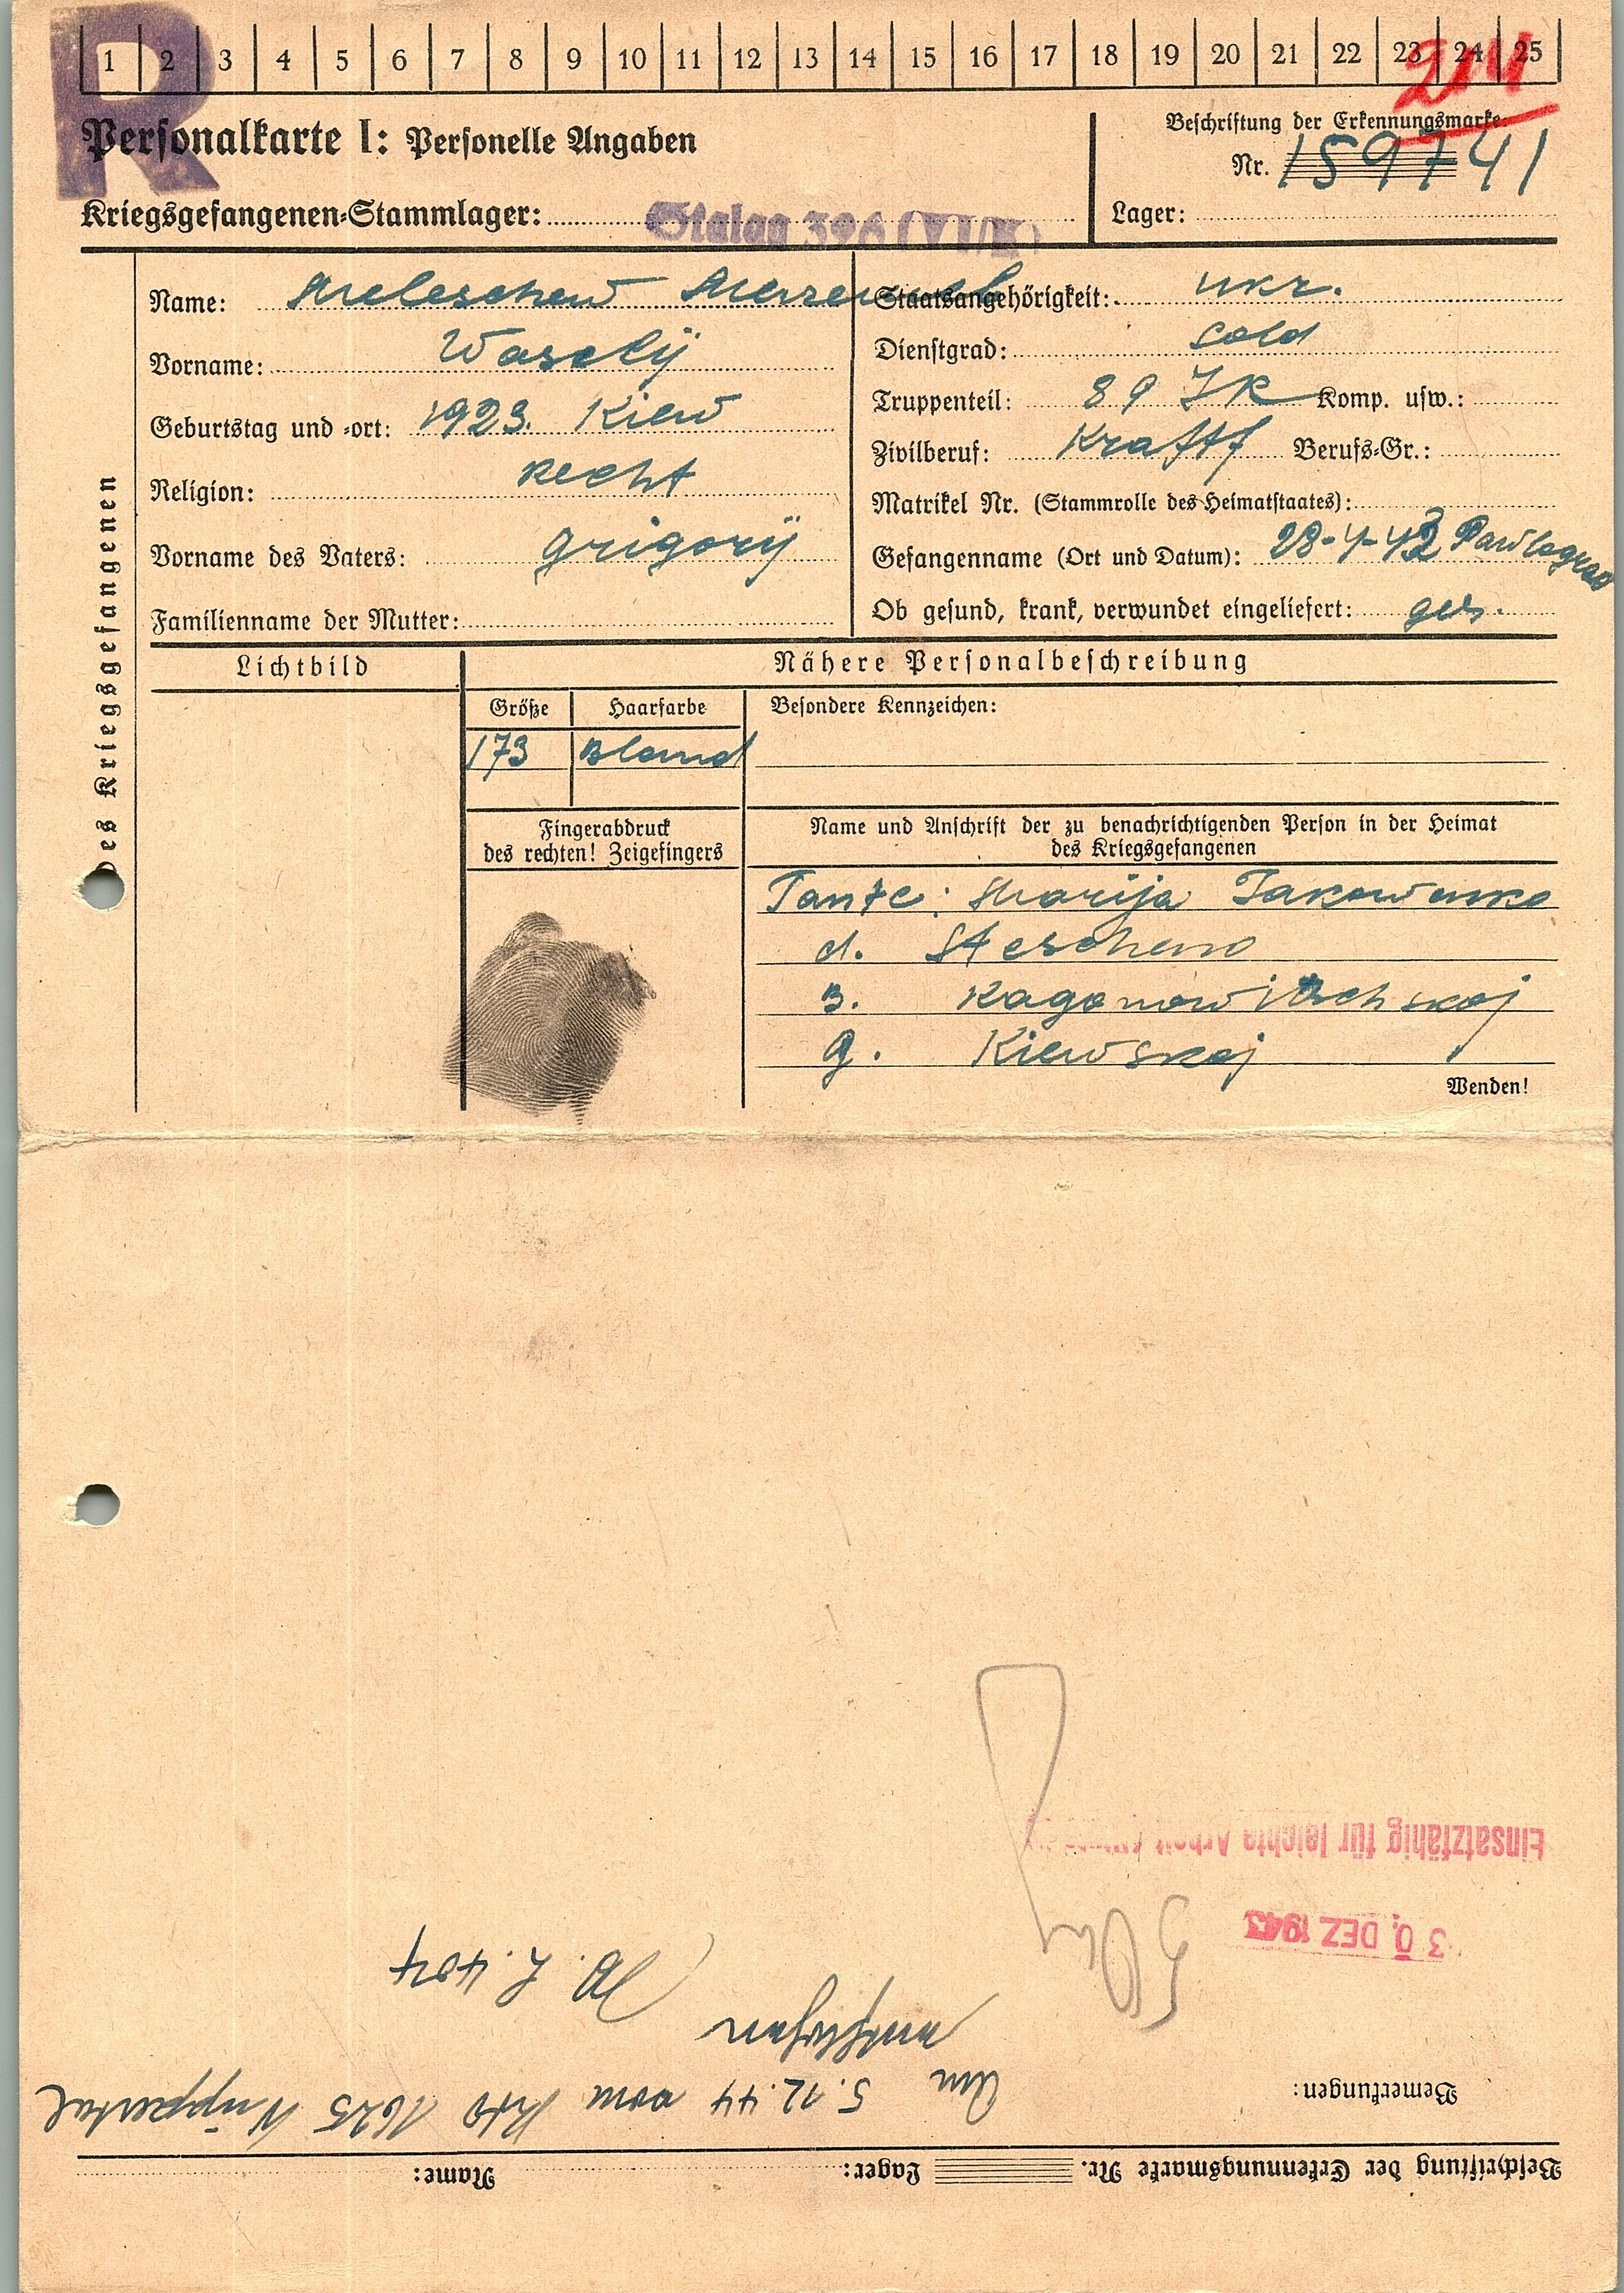 R
1 2 3 4 5 6 7 8 9 10 11 12 13 14 15 16 17 18 19 20 21 22 23 24 25
Personalkarte I: Personelle Angaben
Beschriftung der Erkennungsmarke:
Nr. 159741
Kriegsgefangenen-Stammlager: Stalag 326 (VI/K)
Lager:
Des Kriegsgefangenen
Name: Meleschew
Vorname: Waselij
Geburtstag und -ort: 1923. Kiew
Religion: Recht
Vorname des Vaters: Grigorij
Familienname der Mutter:
Staatsangehörigkeit: ukr.
Dienstgrad: Sold
Truppenteil: 89 IR Komp. usw.:
Zivilberuf: Kraftf Berufs-Gr.:
Matrikel Nr. (Stammrolle des Heimatstaates):
Gefangenname (Ort und Datum): Pawlograd
Ob gesund, krank, verwundet eingeliefert: ges.
Lichtbild
Nähere Personalbeschreibung
Größe Haarfarbe Besondere Kennzeichen:
173 Blond
Fingerabdruck
des rechten! Zeigefingers
Name und Anschrift der zu benachrichtigenden Person in der Heimat
des Kriegsgefangenen
Tante: Marija Jakowenko
d. Steschena
B. Kaganowitschskoj
G. Kiewskoj
Wenden!
Beschriftung der Erkennungsmarke Nr. Lager: Name:
Bemerkungen:
Am 5.12.44 vom Kdo 1625 Wuppertal
entflohen
W. L. 404
30. DEZ 1943
Einsatzfähig für leichte Arbeit